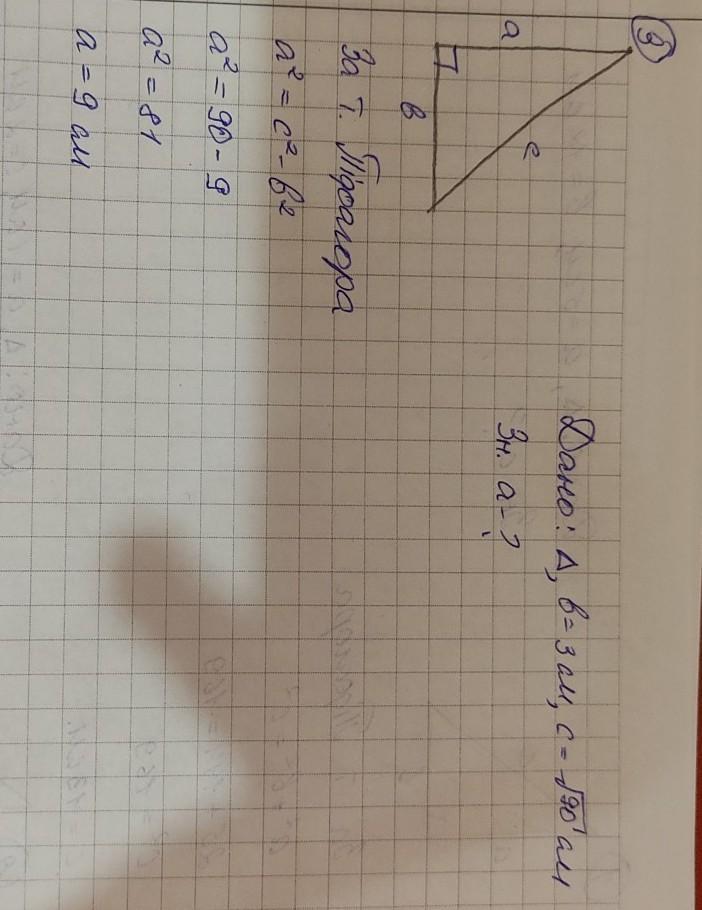 ③
a
в
c
Дано: Δ, в = 3 см, c = √90 см
Зн. a - ?
За т. Піфагора
a² = c² - b²
a² = 90 - 9
a² = 81
a = 9 см